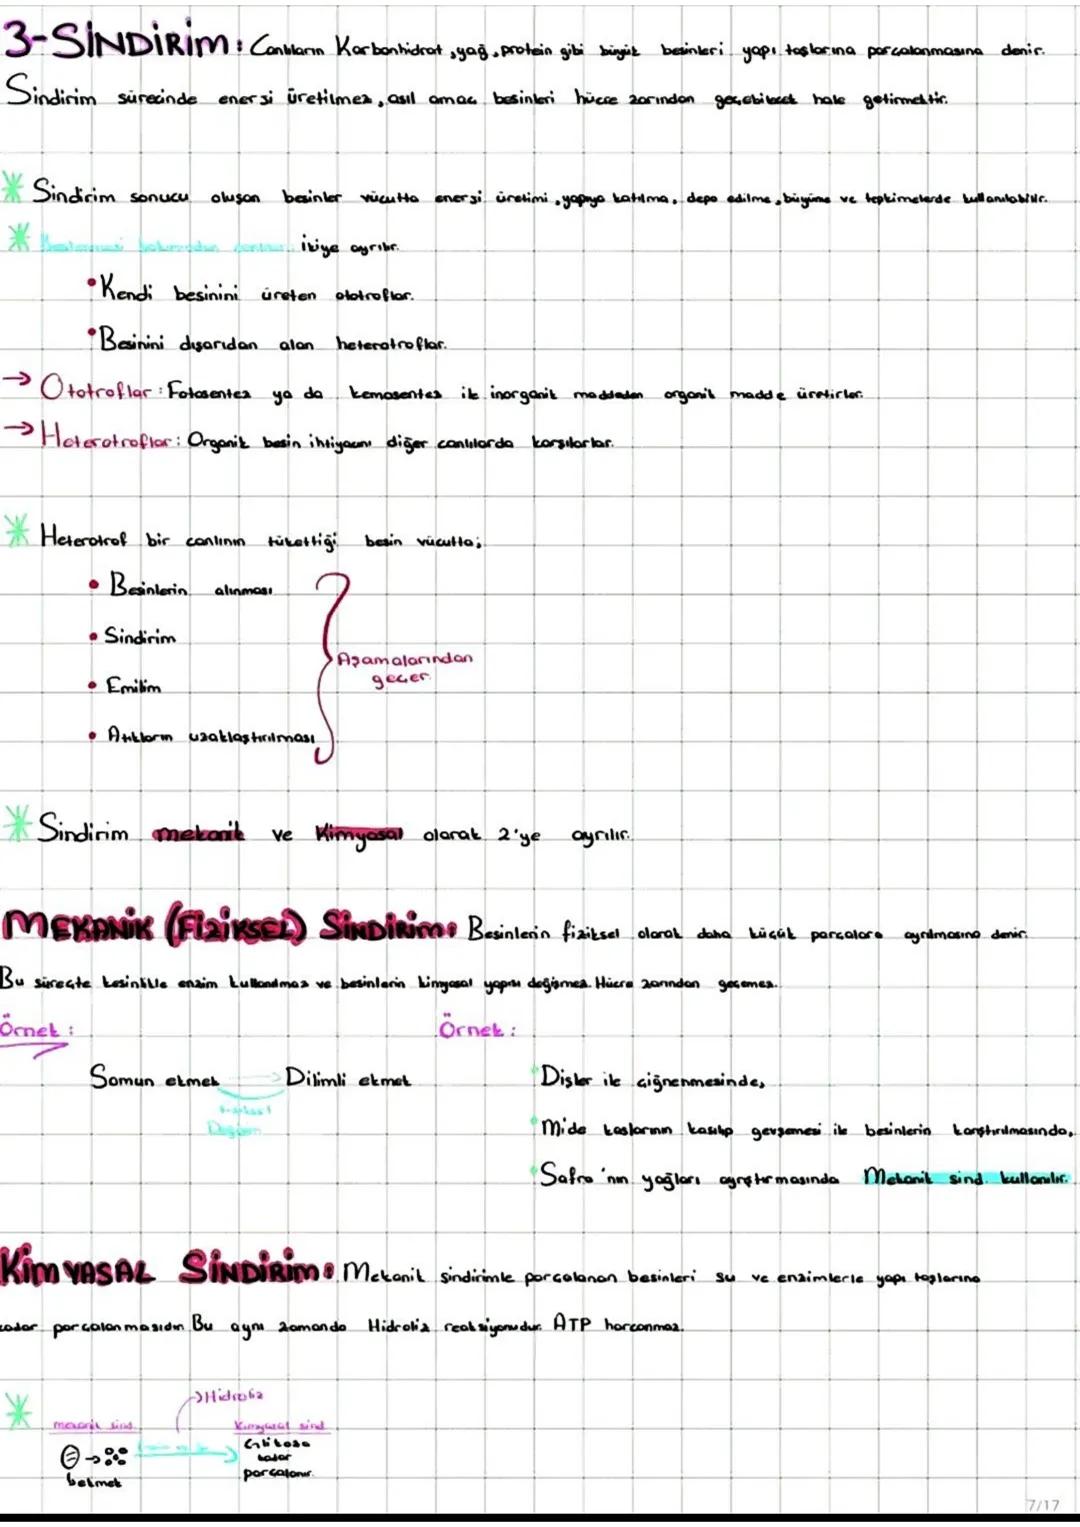 3-SİNDİRİM: Canlıların Karbonhidrat, yağ, protein gibi büyük besinleri yapı taşlarına parçalanmasına denir.
Sindirim sürecinde enerji üretilmez, asıl amaç besinleri hücre zarından geçebilecek hale getirmektir.
Sindirim sonucu oluşan besinler vücutta enerji üretimi, yapıya katılma, depo edilme, büyüme ve tepkimelerde kullanılabilir.
Beslenmesi bakımından canlılar ikiye ayrılır.
• Kendi besinini üreten ototroflar.
• Besinini dışarıdan alan heterotroflar.
→ Ototroflar: Fotosentez ya da kemosentez ile inorganik maddeden organik madde üretirler.
→ Heterotroflar: Organik besin ihtiyacını diğer canlılarda karşılarlar.
Heterotrof bir canlının tükettiği besin vücutta;
• Besinlerin alınması
• Sindirim
• Emilim
• Atıkların uzaklaştırılması
Aşamalarından
geçer.
Sindirim mekanik ve Kimyasal olarak 2'ye ayrılır.
MEKANİK (FİZİKSEL) SİNDİRİM: Besinlerin fiziksel olarak daha küçük parçalara ayrılmasına denir.
Bu süreçte kesinlikle enzim kullanılmaz ve besinlerin kimyasal yapısı değişmez. Hücre zarından geçemez.
Örnek: Örnek:
Somun ekmek → Dilimli ekmek
Fiziksel
Değişim
Dişler ile çiğnenmesinde,
Mide kaslarının kasılıp gevşemesi ile besinlerin karıştırılmasında,
Safra'nın yağları ayrıştırmasında Mekanik sind. kullanılır.
KİMYASAL SİNDİRİM: Mekanik sindirimle parçalanan besinleri su ve enzimlerle yapı taşlarına
kadar parçalanmasıdır. Bu aynı zamanda Hidroliz reaksiyonudur. ATP harcanmaz.
→ Hidroliz
mekanik sind. Kimyasal sind.
Glikoza
kadar
parçalanır.
Ekmek
7/17